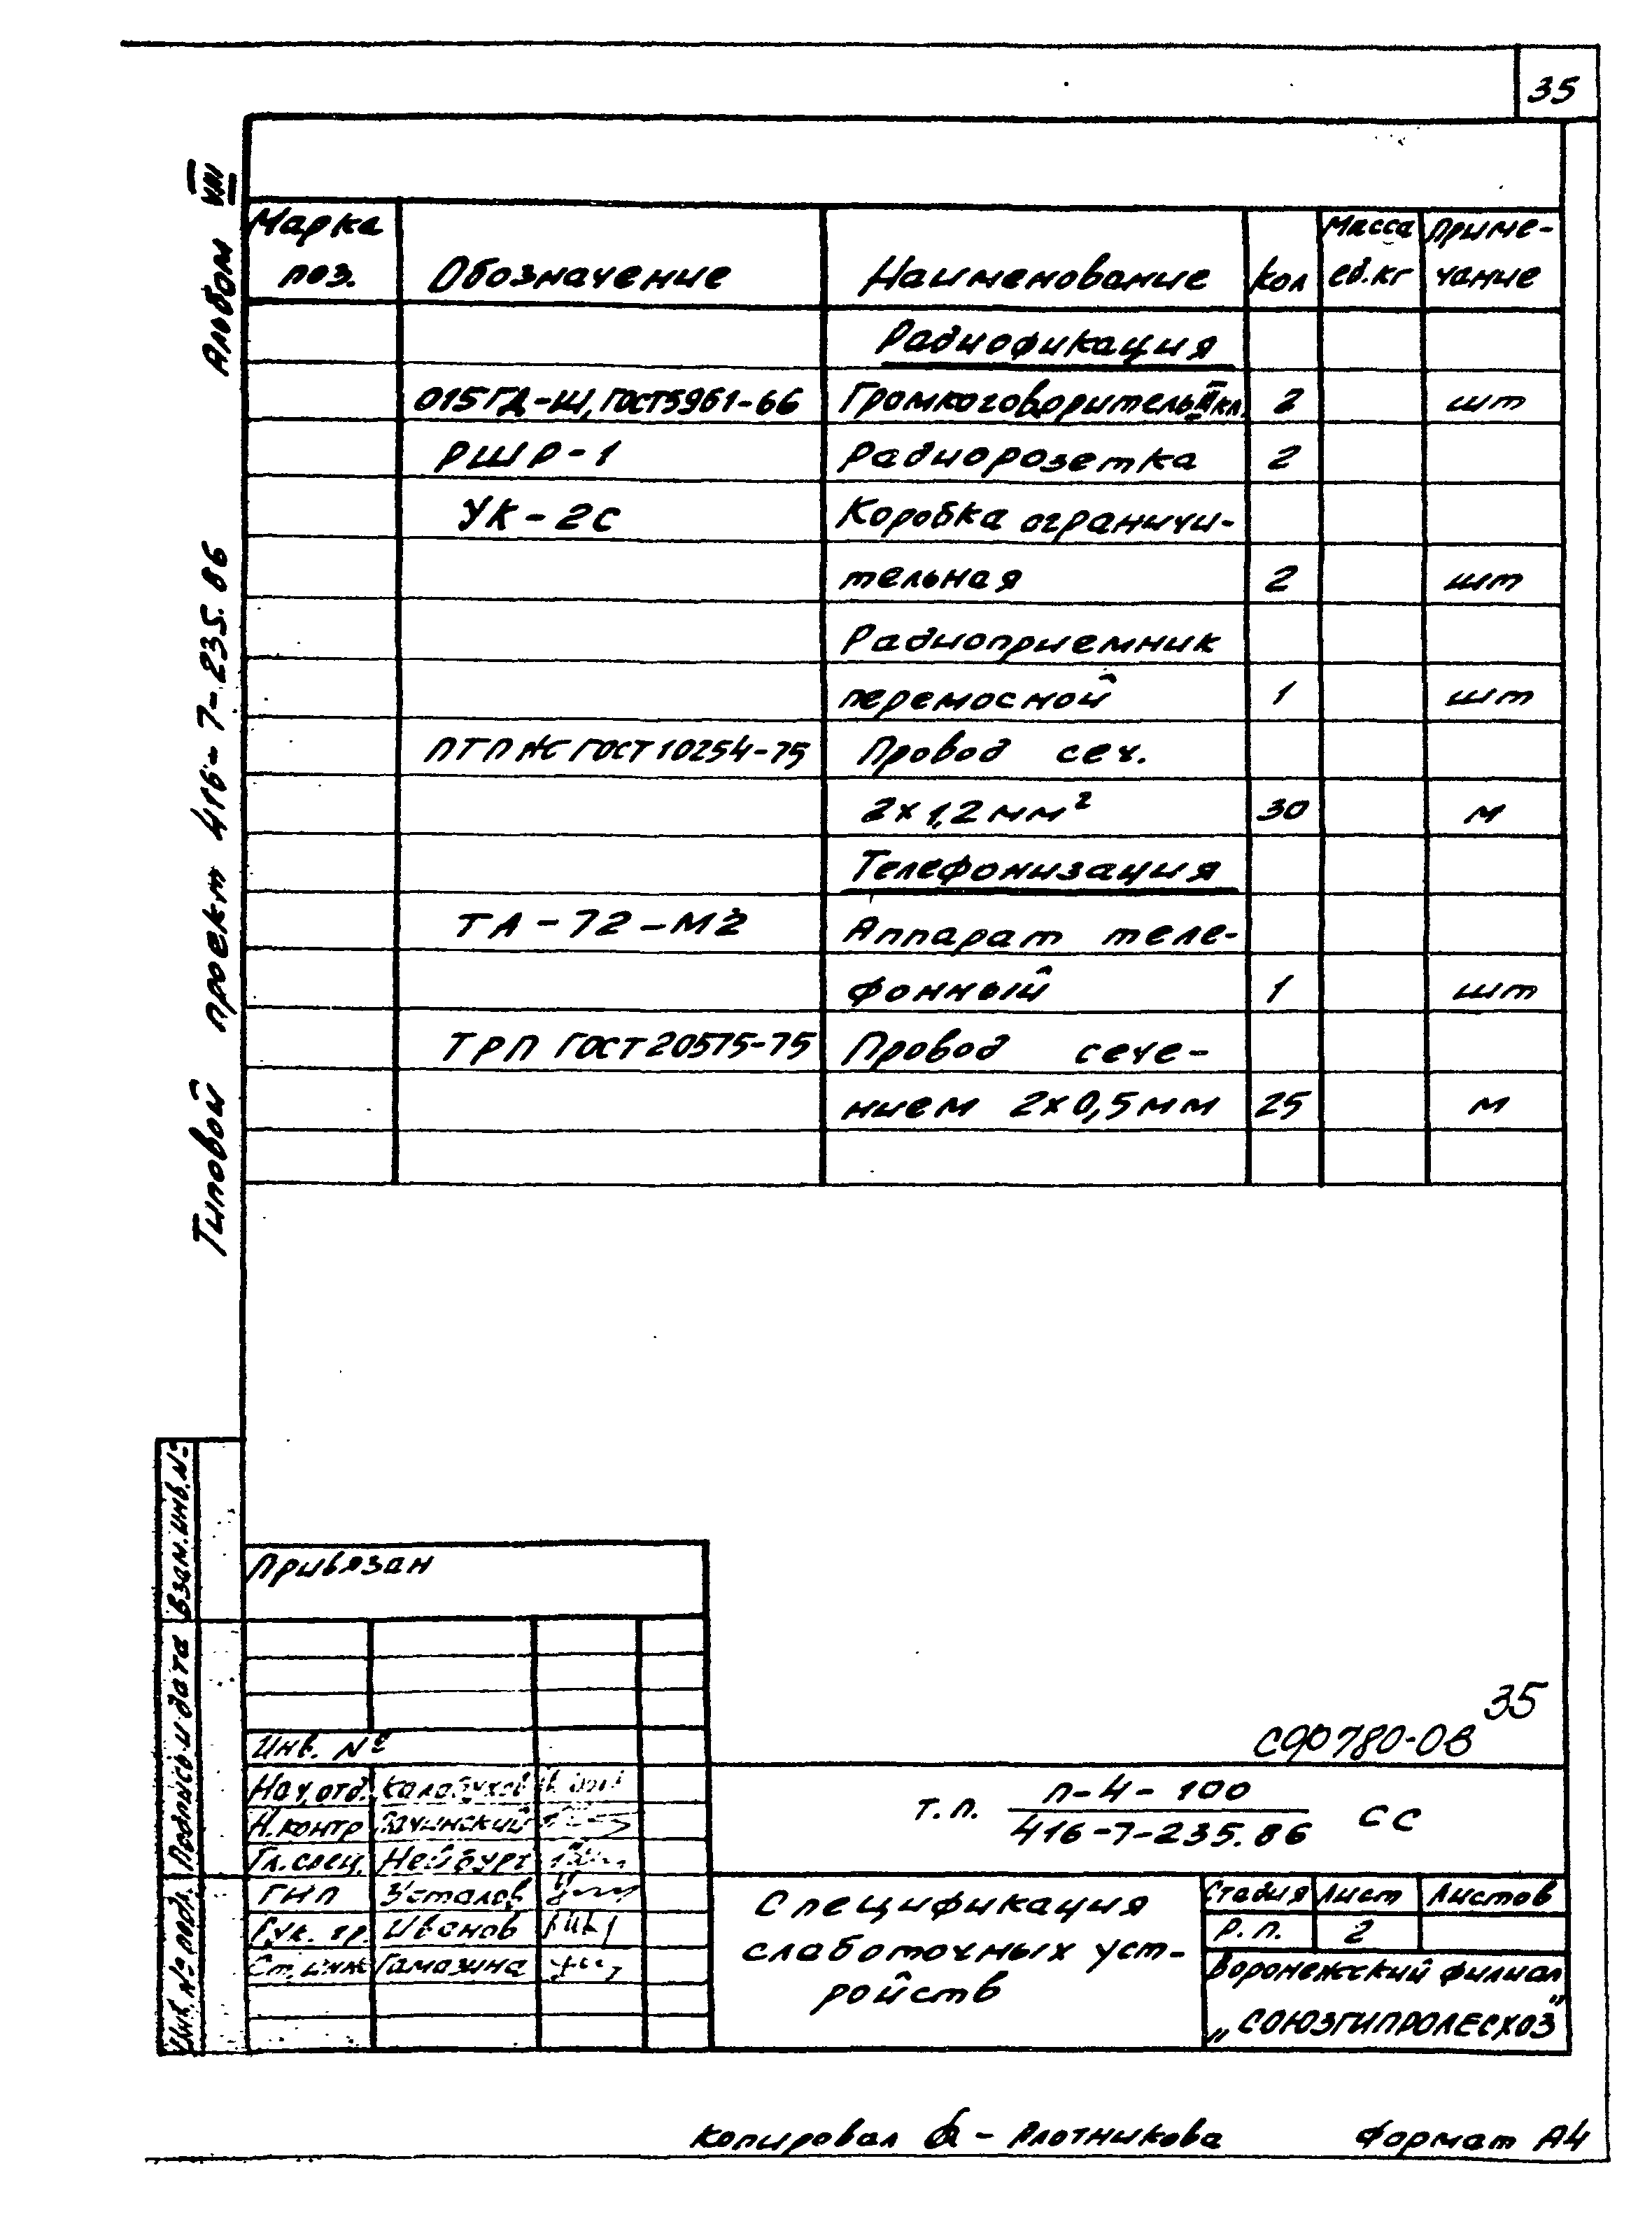 35
Альбом VIII
Типовой проект 416-7-235.86
Марка поз. Обозначение Наименование Кол Масса ед.кг Приме-чание
Радиофикация
015ГД-Ш, ГОСТ5961-66 Громкоговоритель III кл. 2 шт
РШР-1 Радиорозетка 2
УК-2С Коробка ограничи-
тельная 2 шт
Радиоприемник
переносной 1 шт
ПТПЖ ГОСТ 10254-75 Провод сеч.
2х1,2мм² 30 м
Телефонизация
ТА-72-М2 Аппарат теле-
фонный 1 шт
ТРП ГОСТ 20575-75 Провод сече-
нием 2х0,5мм 25 м
Взам.инв.№
Подпись и дата
Инв. № подл.
Привязан
Инв. №
Нач.отд.
Н.контр
Гл.спец. Нейбург
ГИП
Рук. гр. Иванов
Ст.инж Гамазина
35
СФ780-08
т.п. п-4-100
416-7-235.86 СС
Спецификация
слаботочных уст-
ройств
Стадия Лист Листов
Р.п. 2
Воронежский филиал
„СОЮЗГИПРОЛЕСХОЗ"
Копировал - Плотникова Формат А4